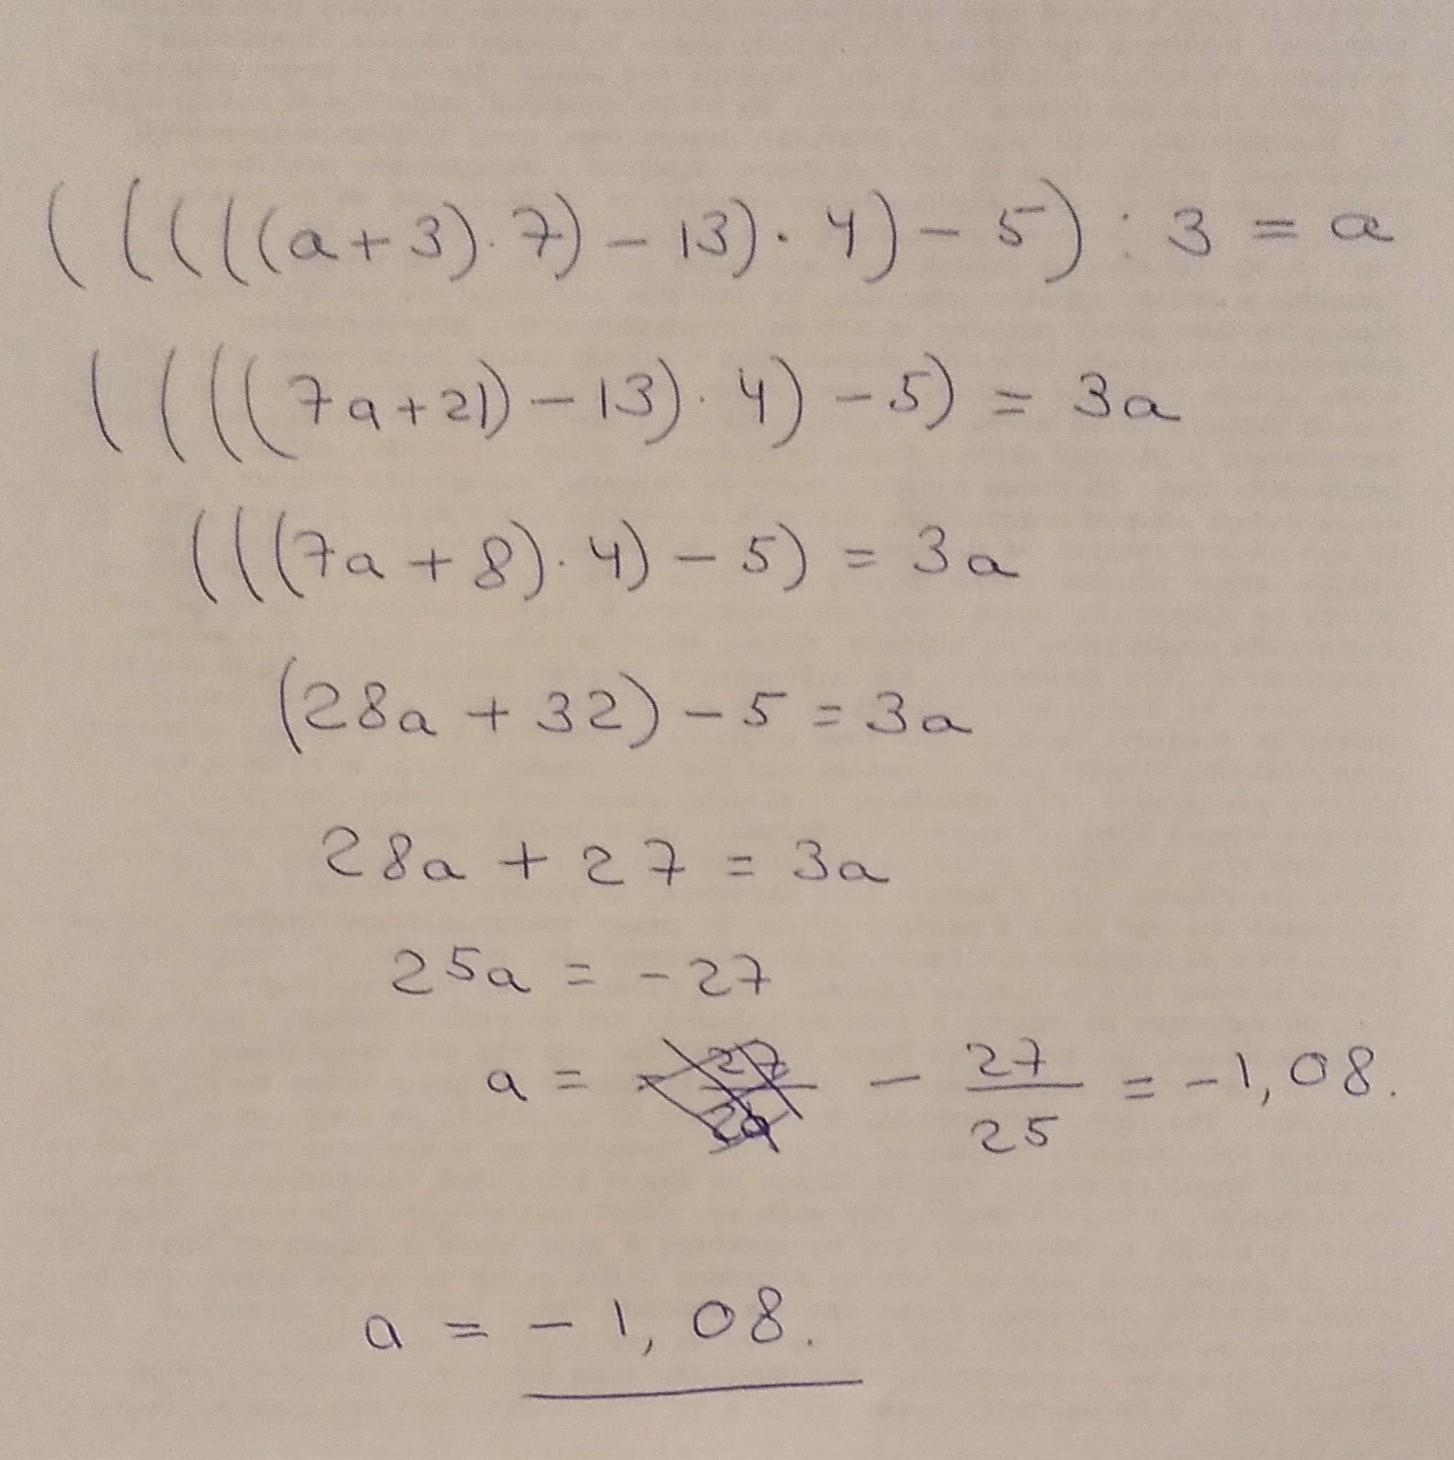 (((((a+3)·7)-13)·4)-5):3=a
((((7a+21)-13)·4)-5)=3a
(((7a+8)·4)-5)=3a
(28a+32)-5=3a
28a+27=3a
25a=-27
a= -27/25=-1,08.
a=-1,08.